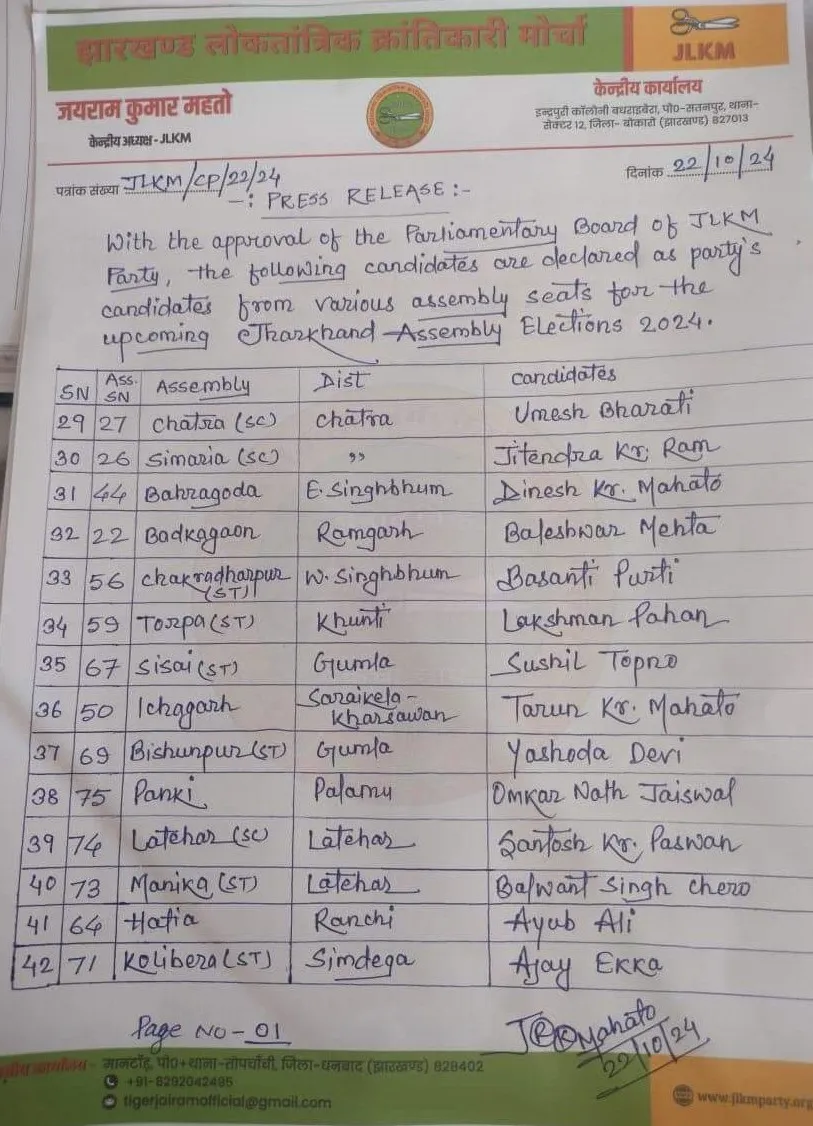 झारखण्ड लोकतांत्रिक क्रांतिकारी मोर्चा
JLKM
जयराम कुमार महतो
केन्द्रीय अध्यक्ष - JLKM
केन्द्रीय कार्यालय
इन्द्रपुरी कॉलोनी बधराबेरा, पो०- सतनपुर, थाना-
सेक्टर 12, जिला- बोकारो (झारखण्ड) 827013
पत्रांक संख्या JLKM/CP/22/24
दिनांक 22/10/24
-: PRESS RELEASE :-
With the approval of the Parliamentary Board of JLKM
Party, the following candidates are declared as party's
candidates from various assembly seats for the
upcoming Jharkhand Assembly Elections 2024.
SN Ass. SN Assembly Dist Candidates
29 27 Chatra (SC) Chatra Umesh Bharati
30 26 Simaria (SC) " Jitendra Kr. Ram
31 44 Bahragoda E. Singhbhum Dinesh Kr. Mahato
32 22 Badkagaon Ramgarh Baleshwar Mehta
33 56 Chakradharpur (ST) W. Singhbhum Basanti Purti
34 59 Torpa (ST) Khunti Lakshman Pahan
35 67 Sisai (ST) Gumla Sushil Topno
36 50 Ichagarh Saraikela - Kharsawan Tarun Kr. Mahato
37 69 Bishunpur (ST) Gumla Yashoda Devi
38 75 Panki Palamu Omkar Nath Jaiswal
39 74 Latehar (SC) Latehar Santosh Kr. Paswan
40 73 Manika (ST) Latehar Balwant Singh Chero
41 64 Hatia Ranchi Ayub Ali
42 71 Kolibera (ST) Simdega Ajay Ekka
Page No - 01
Mahato
22/10/24
कार्यालय - मानटाँड़, पो०+थाना-तोपचाँची, जिला-धनबाद (झारखण्ड) 828402
+91-8292042485
tigerjairamofficial@gmail.com
www.jlkmparty.org